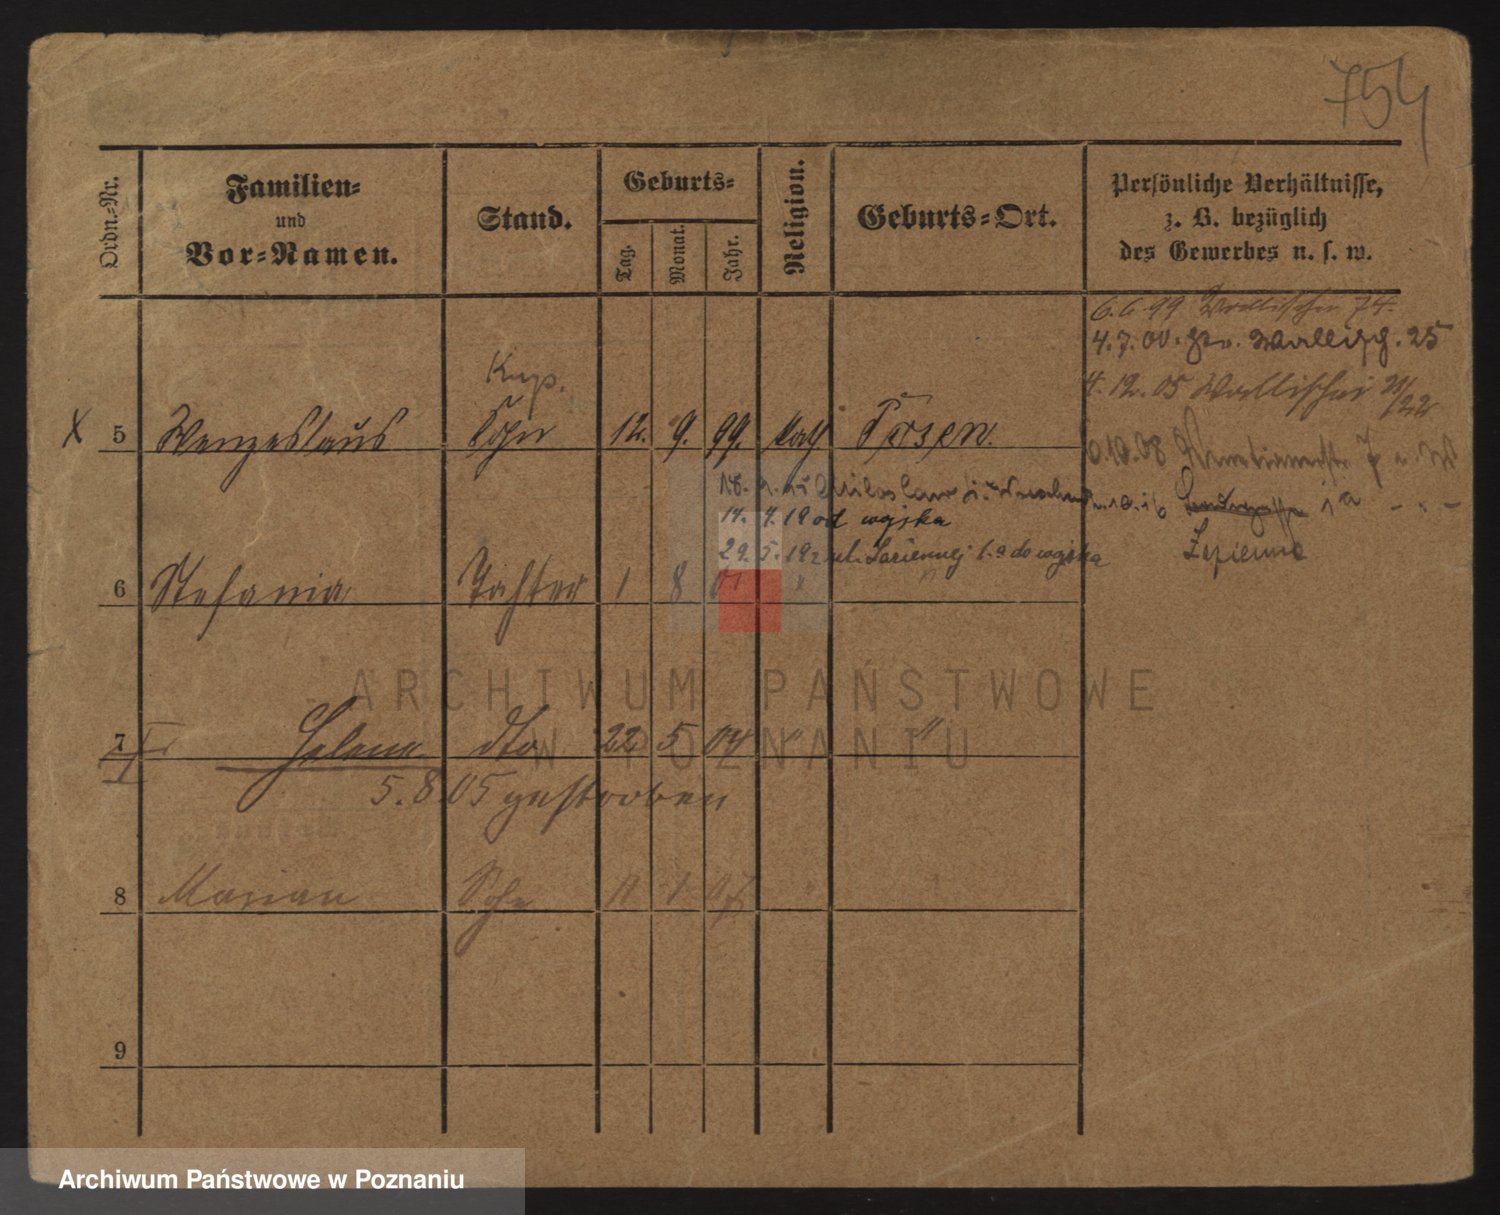 754
Ordn.-Nr.
Familien-
und
Vor-Namen.
Stand.
Geburts-
Tag.
Monat.
Jahr.
Religion.
Geburts-Ort.
Persönliche Verhältnisse,
z. B. bezüglich
des Gewerbes u. s. w.
6.6.99 Wallischei 74.
4.7.00. Wallisch. 25
4.12.05 Wallischei 21/22
10.08 7
1a
Zepienne
Kup.
X 5 Wenzeslaus Sohn 12. 9. 99. kath. Posen.
14. 4. 19 od wojska
29. 5. 19 1.a do wojska
6 Stefania Tochter 1 8 01 " "
7 Helena dto 22 5 04 " "
5.8.05 gestorben
8 Marian Sohn 11 1 07 "
9
ARCHIWUM PAŃSTWOWE
W POZNANIU
Archiwum Państwowe w Poznaniu